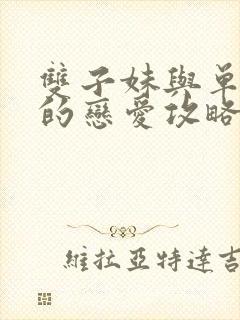 雙子妹與單
的戀愛攻略
維拉亞特達吉